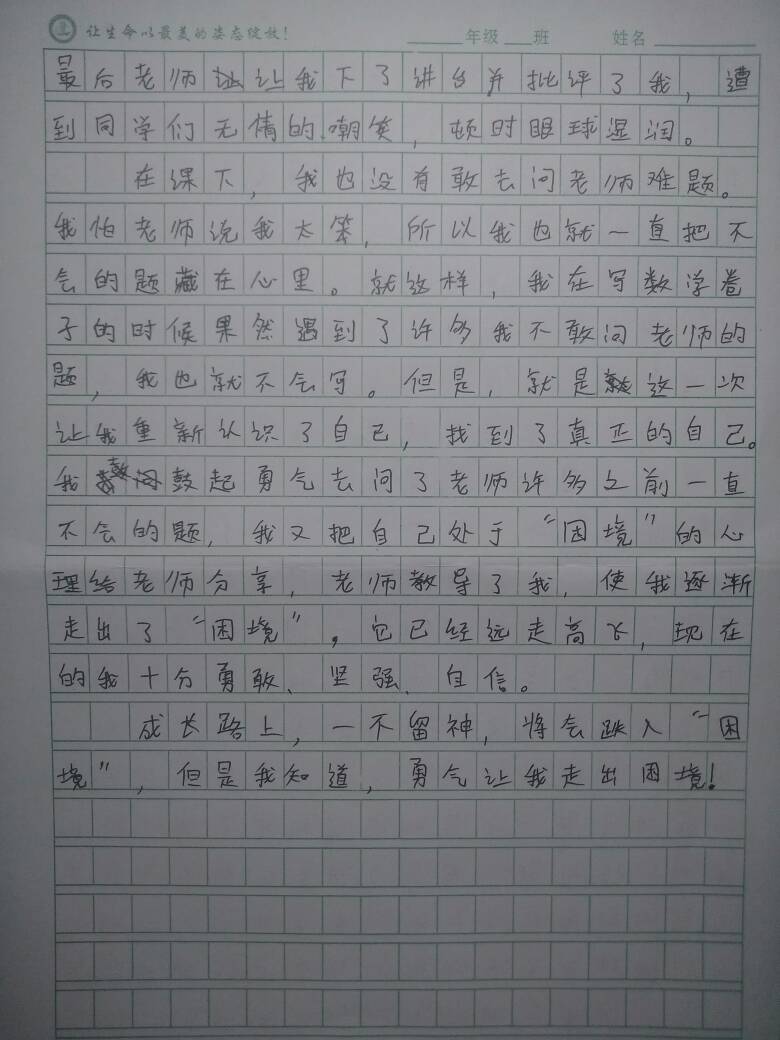 让生命以最美的姿态绽放! 年级 班 姓名
最后老师让我下了讲台并批评了我,遭
到同学们无情的嘲笑,顿时眼球湿润。
在课下,我也没有敢去问老师难题。
我怕老师说我太笨,所以我也就一直把不
会的题藏在心里。就这样,我在写数学卷
子的时候果然遇到了许多我不敢问老师的
题,我也就不会写。但是,就是这一次
让我重新认识了自己,找到了真正的自己。
我鼓起勇气去问了老师许多之前一直
不会的题,我又把自己处于“困境”的心
理给老师分享,老师教导了我,使我逐渐
走出了“困境”,它已经远走高飞,现在
的我十分勇敢、坚强、自信。
成长路上,一不留神,将会跌入“困
境”,但是我知道,勇气让我走出困境!